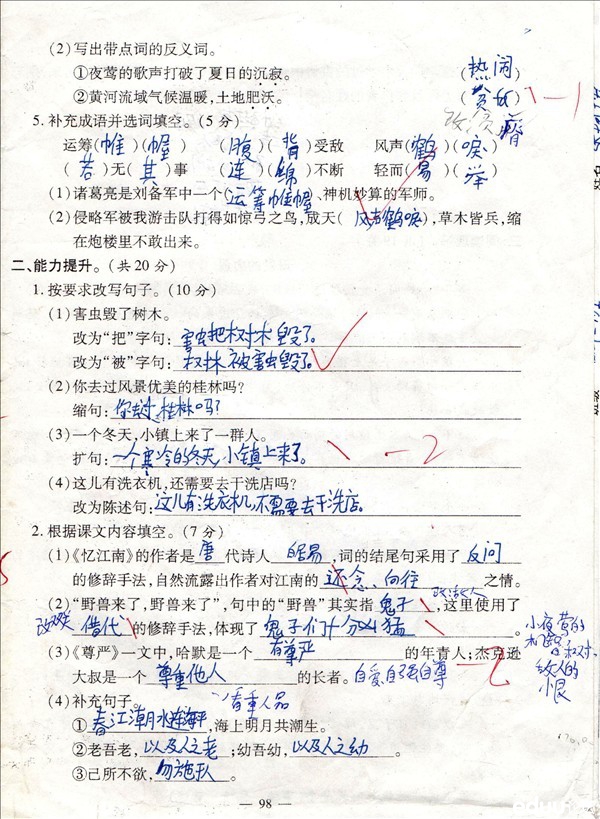 (2)写出带点词的反义词。
①夜莺的歌声打破了夏日的沉寂。 (热闹)
②黄河流域气候温暖,土地肥沃。 (贫)
瘠
5.补充成语并选词填空。(5分)
运筹(帷)(幄) (腹)(背)受敌 风声(鹤)(唳)
(若)无(其)事 (连)(绵)不断 轻而(易)(举)
(1)诸葛亮是刘备军中一个(运筹帷幄)、神机妙算的军师。
(2)侵略军被我游击队打得如惊弓之鸟,成天(风声鹤唳),草木皆兵,缩
在炮楼里不敢出来。
二、能力提升。(共20分)
1.按要求改写句子。(10分)
(1)害虫毁了树木。
改为“把”字句:害虫把树木毁了。
改为“被”字句:树木被害虫毁了。
(2)你去过风景优美的桂林吗?
缩句:你去过桂林吗?
(3)一个冬天,小镇上来了一群人。
扩句:一个寒冷的冬天,小镇上来了。 -2
(4)这儿有洗衣机,还需要去干洗店吗?
改为陈述句:这儿有洗衣机,不需要去干洗店。
2.根据课文内容填空。(7分)
(1)《忆江南》的作者是 唐 代诗人 白居易 ,词的结尾句采用了 反问
的修辞手法,自然流露出作者对江南的 还念、向往 之情。
(2)“野兽来了,野兽来了”,句中的“野兽”其实指 鬼子 ,这里使用了
借代 的修辞手法,体现了 鬼子们十分凶猛 。
小夜莺的
敌人的
恨
(3)《尊严》一文中,哈默是一个 有尊严 的年青人;杰克逊
大叔是一个 尊重他人 的长者。 自爱自强自尊
看重人品
(4)补充句子。
①春江潮水连海平,海上明月共潮生。
②老吾老,以及人之老;幼吾幼,以及人之幼。
③己所不欲,勿施于人。
— 98 —